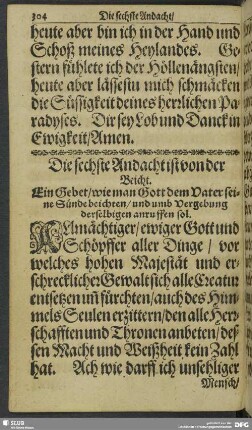 304
Die sechste Andacht/
heute aber bin ich in der Hand und
Schoß meines Heylandes. Ge⸗
stern fühlete ich der Höllenängsten/
heute aber lässestu mich schmäcken
die Süssigkeit deines herrlichen Pa⸗
radyses. Dir sey Lob und Danck in
Ewigkeit/Amen.
Die sechste Andacht ist von der
Beicht.
Ein Gebet/wie man Gott dem Vater sei⸗
ne Sünde beichten/und umb Vergebung
derselbigen anruffen sol.
Allmächtiger/ewiger Gott und
Schöpffer aller Dinge/ vor
welches hohen Majestät und er⸗
schrecklicher Gewalt sich alle Creatur
entsetzen uñ fürchten/auch des Him⸗
mels Seulen erzittern/den alle Herr⸗
schafften und Thronen anbeten/des⸗
sen Macht und Weißheit kein Zahl
hat. Ach wie darff ich unseliger
Mensch/
SLUB